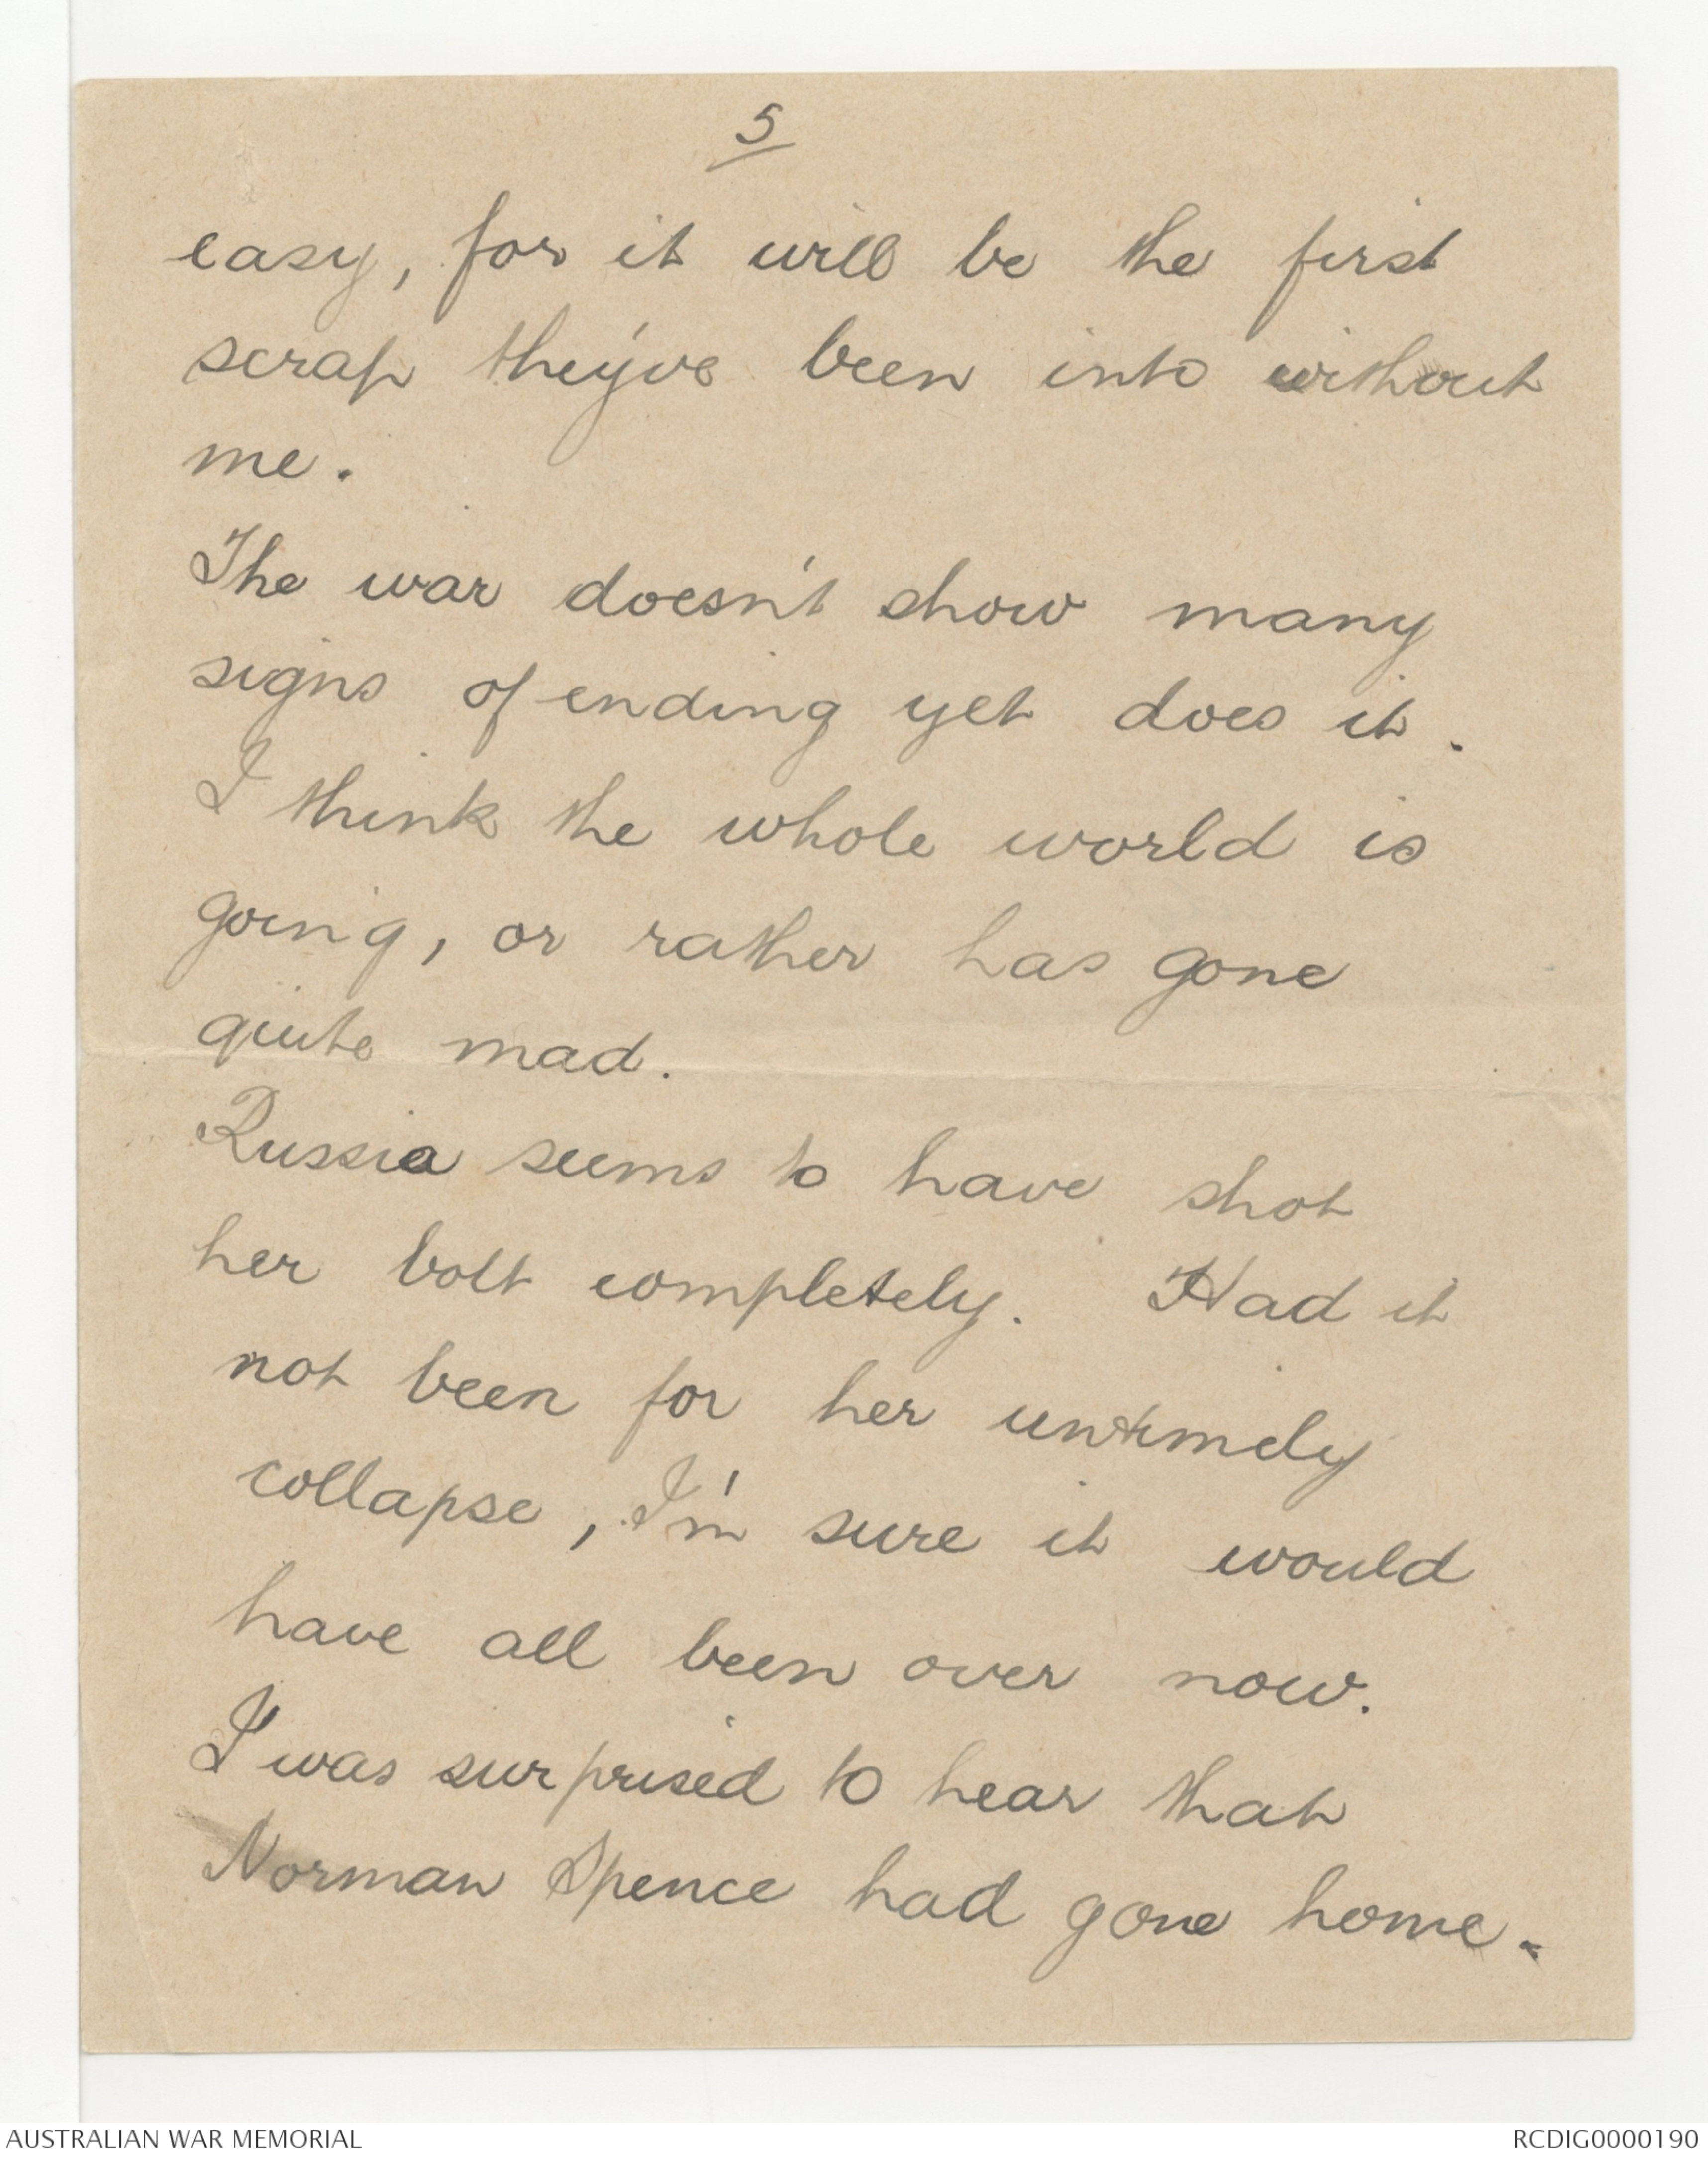 5
easy, for it will be the first
scrap they've been into without
me.
The war doesn't show many
signs of ending yet does it.
I think the whole world is
going, or rather has gone
quite mad.
Russia seems to have shot
her bolt completely. Had it
not been for her untimely
collapse, I'm sure it would
have all been over now.
I was surprised to hear that
Norman Spence had gone home.
AUSTRALIAN WAR MEMORIAL
RCDIG0000190